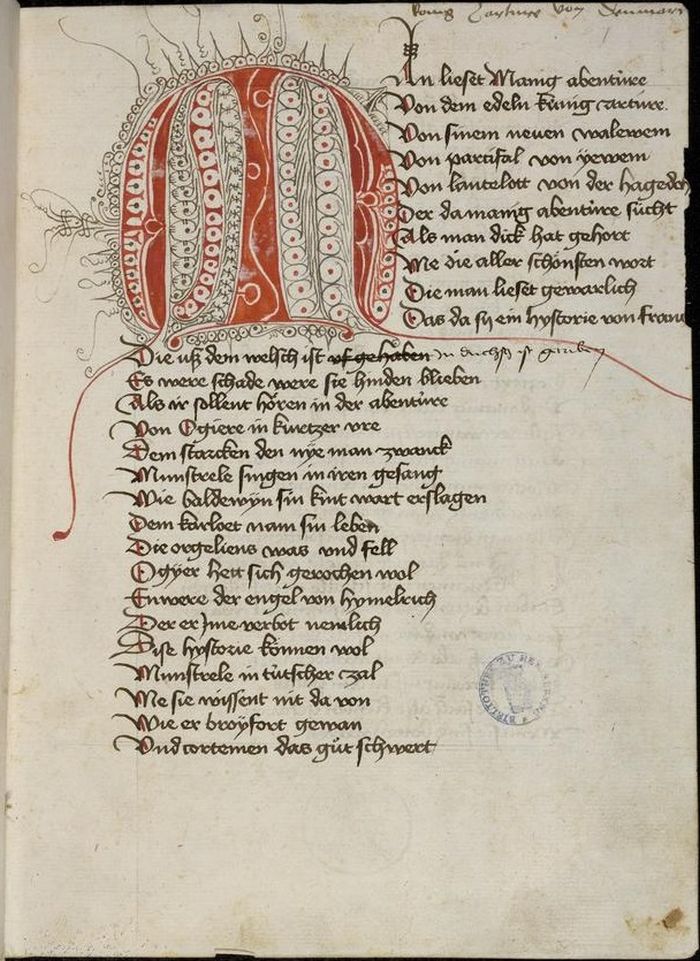 konig von
MAn lieset Manig abentúre
Von dem edeln kúnig artúre
Von sinem neuen walewem
Von partifal von yewem
Von lantzelott von der hagedo
Der da manig abentúre sücht
Als man dick hat gehort
Me die aller schönsten wort
Die man lieset gewarlich
Das da sy ein hystorie von Franc
Die uß dem welsch ist uf gehaben in
Es were schade were sie hinden blieben
Als ir sollent hören in der abentúre
Von Ogiere in kurtzer vre
Dem starcken den nÿe man zwanck
Munstrele singen in iren gesang
Wie baldewÿn sin kint wart erslagen
Dem karloet nam sin leben
Die orgeliens was vnd fell
Ogÿer hett sich gerochen wol
Enwere der engel von hymelrich
Der er Jme verbot nemlich
Dise hystorie können wol
Munstrele in tútscher zal
Me sie wissent nit da von
Wie er broÿfort gewan
Vnd cortemen das gůt schwert